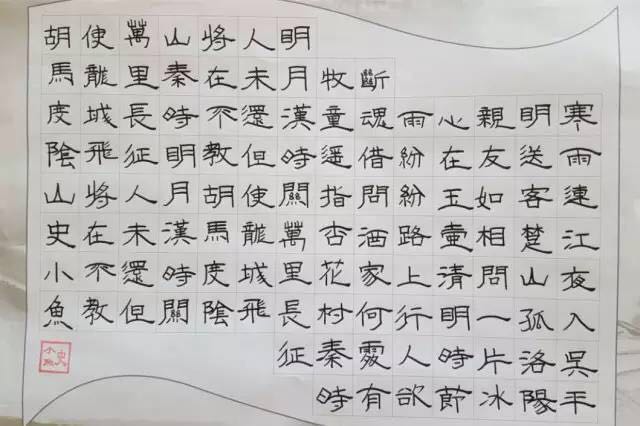 寒雨連江夜入吳平
明送客楚山孤洛陽
親友如相問一片冰
心在玉壺清明時節
雨紛紛路上行人欲
斷魂借問酒家何處有
牧童遥指杏花村秦時
明月漢時關萬里長征
人未還但使龍城飛
將在不教胡馬度陰
山秦時明月漢時關
萬里長征人未還但
使龍城飛將在不教
胡馬度陰山史小魚